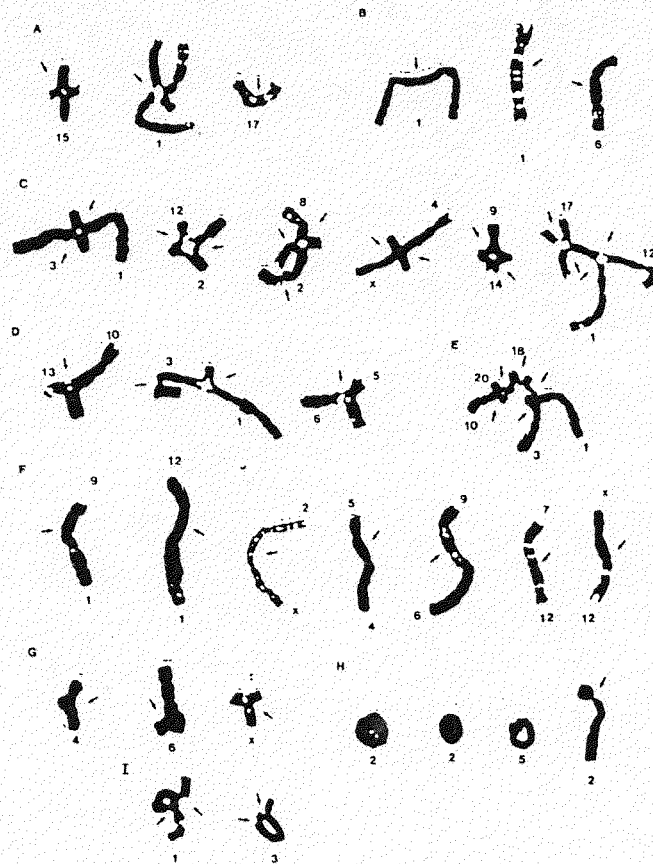 A
B
15
1
17
1
1
6
C
3
1
12
2
8
2
4
x
9
14
17
12
1
D
13
10
3
1
6
5
E
20
18
10
3
1
F
9
1
12
1
2
x
5
4
9
6
7
12
x
12
G
4
6
x
H
2
2
5
2
I
1
3